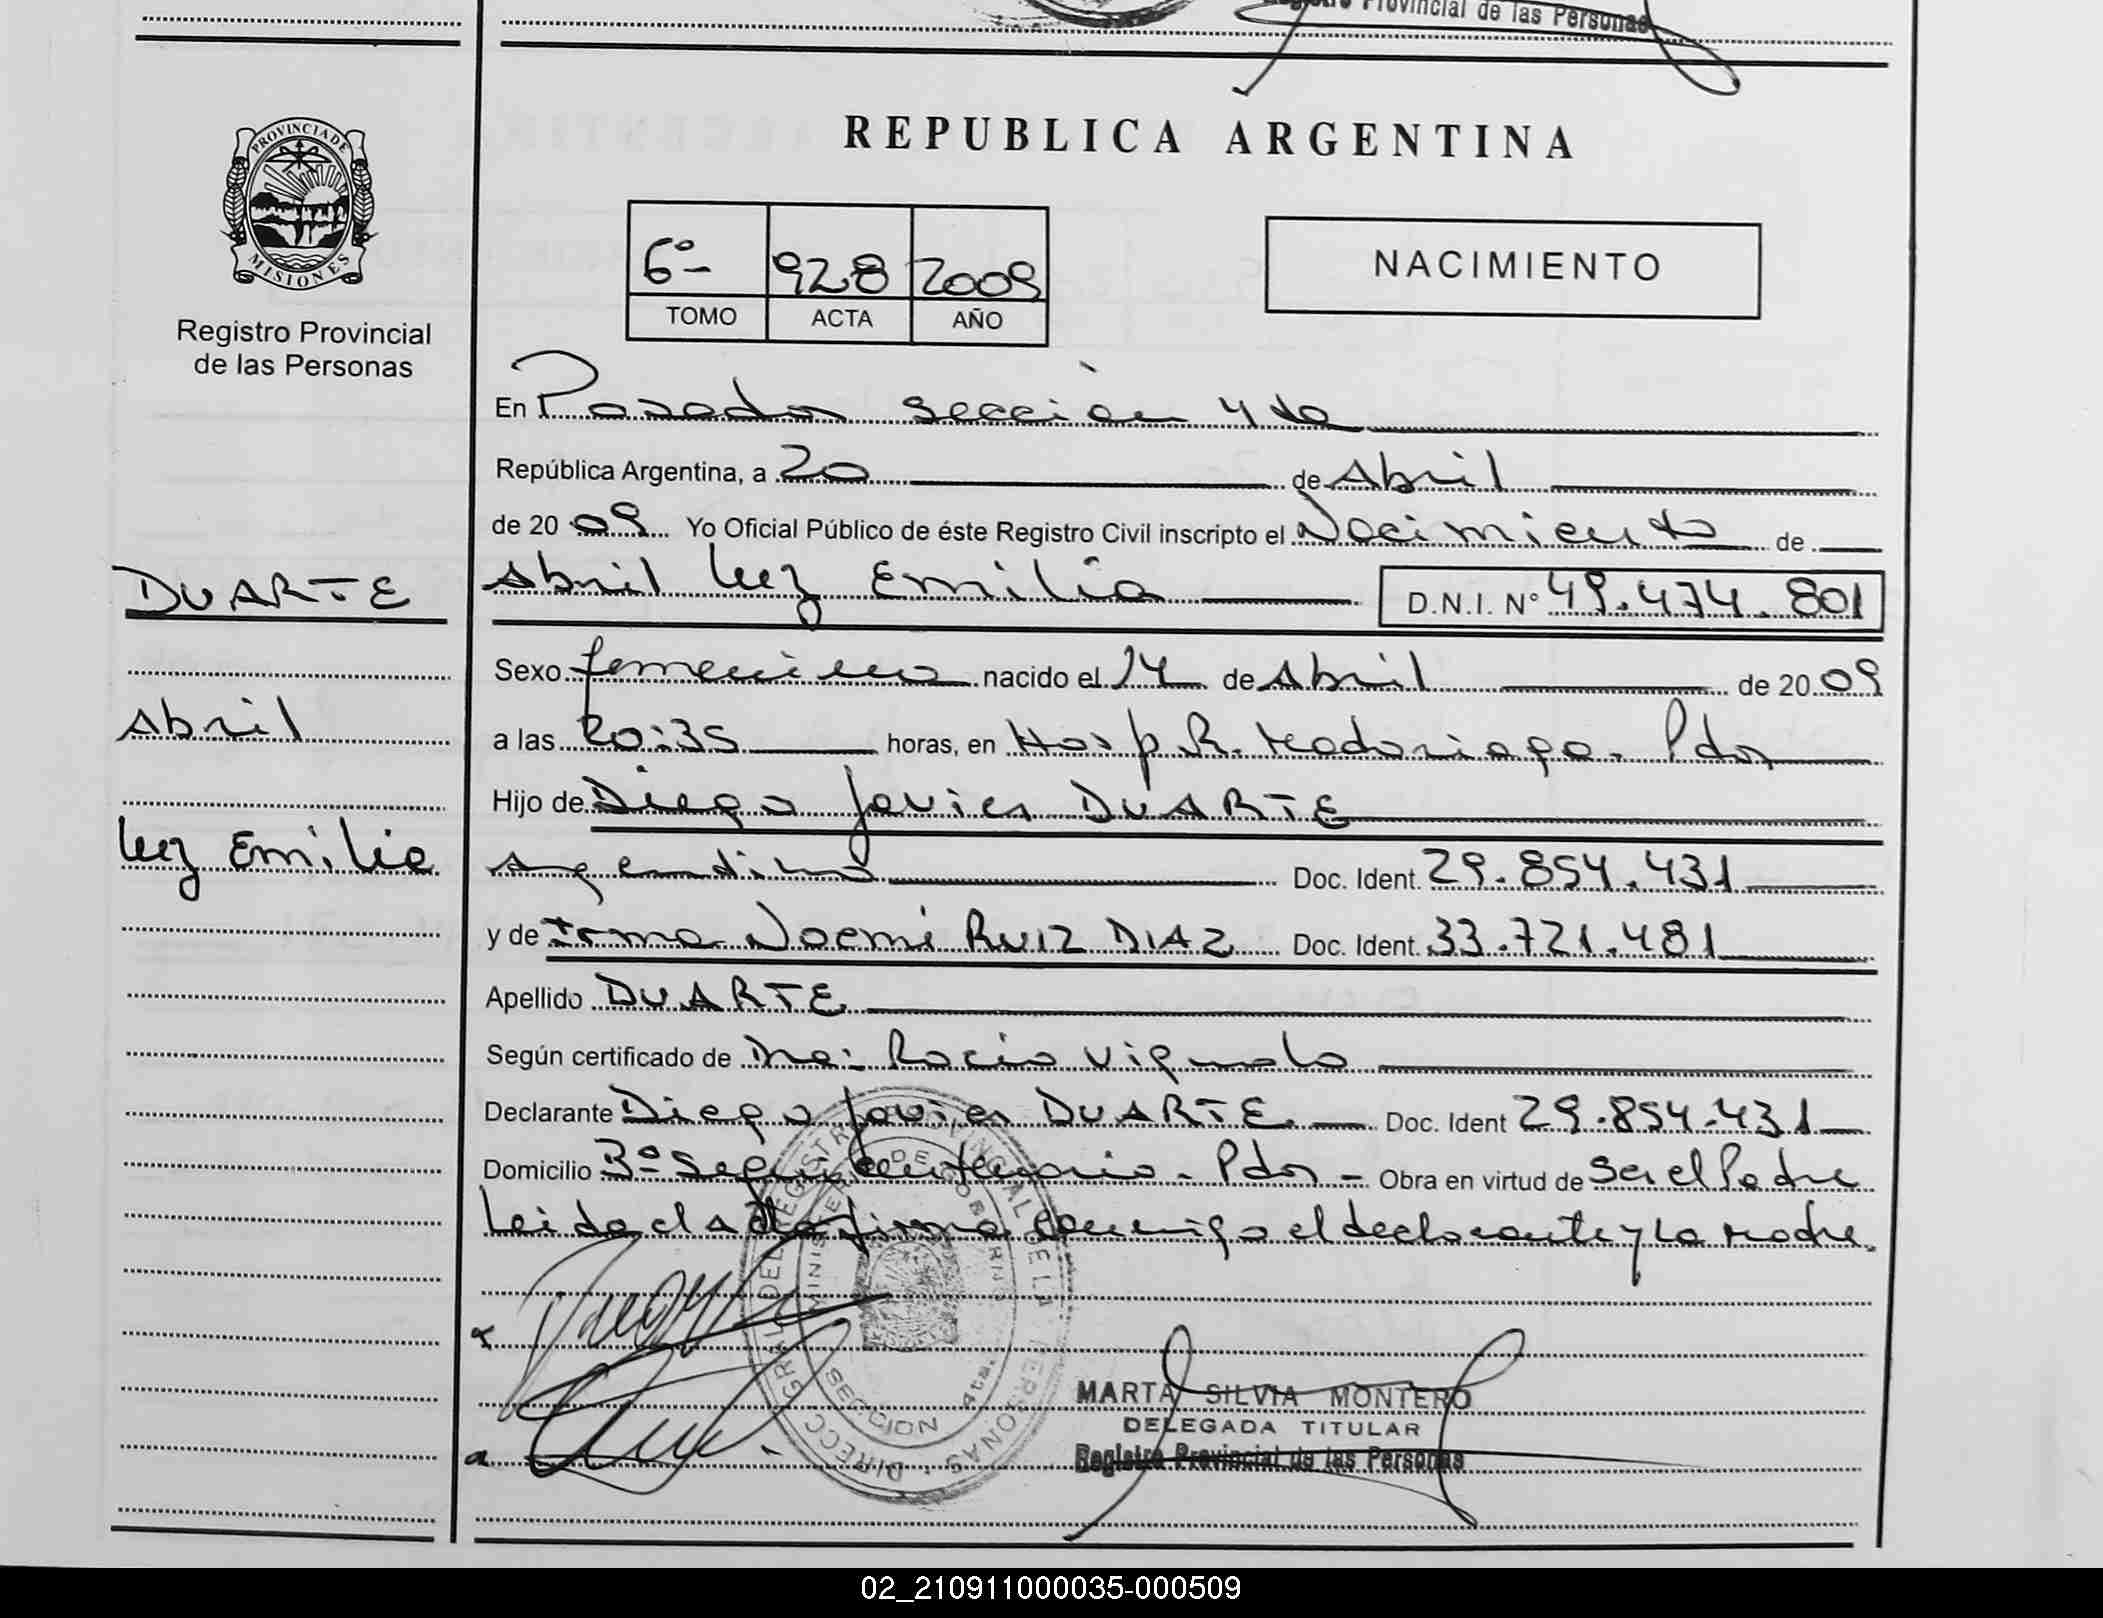 Registro Provincial de las Personas
PROVINCIA DE
MISIONES
Registro Provincial
de las Personas
DUARTE
Abril
Luz Emilia
REPUBLICA ARGENTINA
6º- 928 2009
TOMO ACTA AÑO
NACIMIENTO
En Posadas sección 4ta
República Argentina, a 20 de Abril
de 20 09 Yo Oficial Público de éste Registro Civil inscripto el Nacimiento de
Abril Luz Emilia D.N.I. Nº 49.474.801
Sexo femenino nacido el 14 de Abril de 20 09
a las 20:35 horas, en Hosp. R. Madariaga. Pdas
Hijo de Diego Javier DUARTE
Argentino Doc. Ident. 29.854.431
y de Irma Noemi RUIZ DIAZ Doc. Ident. 33.721.481
Apellido DUARTE
Según certificado de Dra: Rocio Vignolo
Declarante Diego Javier DUARTE Doc. Ident 29.854.431
Domicilio Bº Segu. Centenario - Pdas - Obra en virtud de Ser el Padre
Leida el Acta firma conmigo el declarante y la madre.
MARTA SILVIA MONTERO
DELEGADA TITULAR
Registro Provincial de las Personas
SECCION 4ta.
02_210911000035-000509